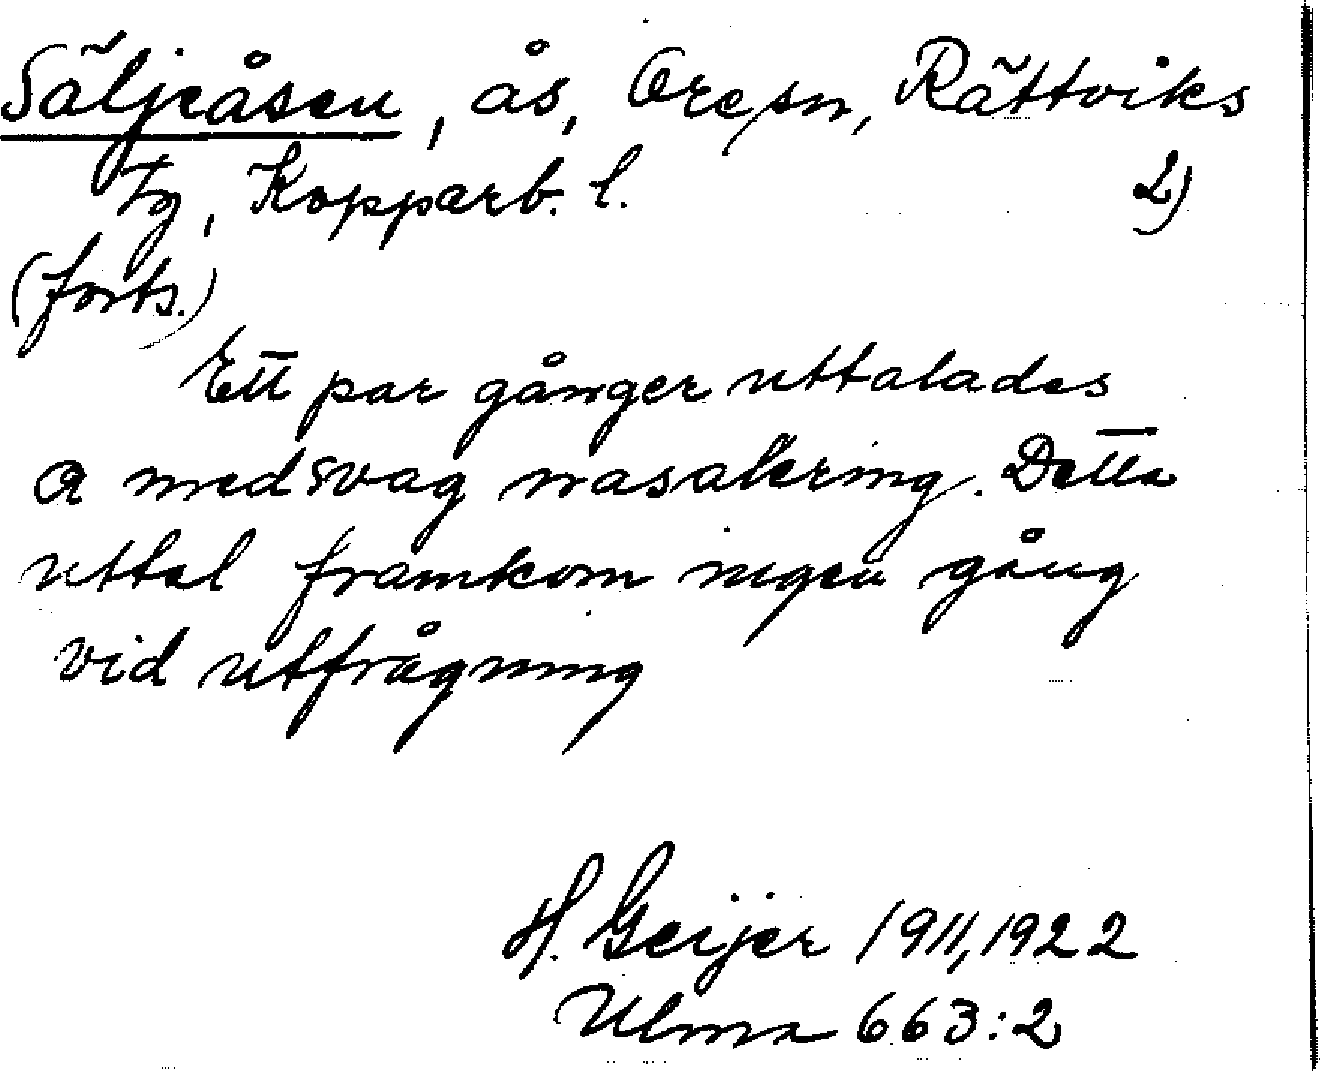 Säljeåsen, ås, Ore sn, Rättviks
tg, Kopparb. l. 2)
(forts.)
Ett par gånger uttalades
a med svag nasalering. Detta
uttal framkom ingen gång
vid utfrågning
H. Geijer 1911, 1922
Ulma 663:2